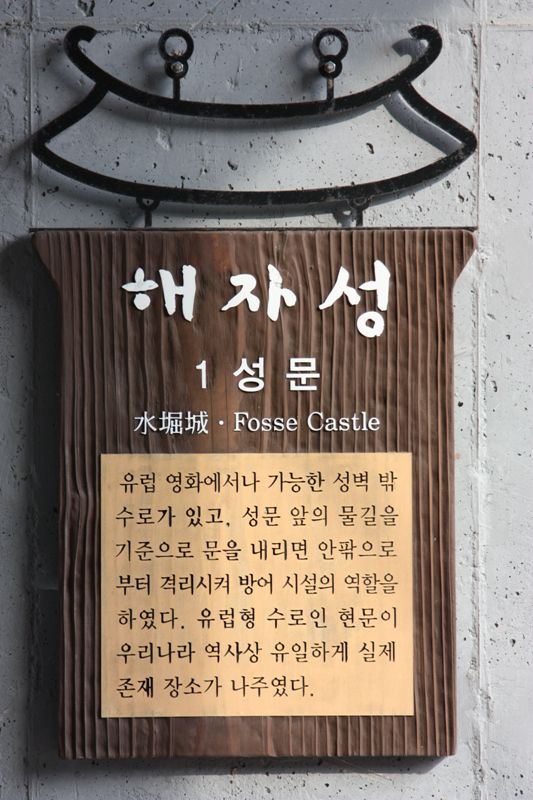 해자성
1 성문
水堀城 · Fosse Castle
유럽 영화에서나 가능한 성벽 밖
수로가 있고, 성문 앞의 물길을
기준으로 문을 내리면 안팎으로
부터 격리시켜 방어 시설의 역할을
하였다. 유럽형 수로인 현문이
우리나라 역사상 유일하게 실제
존재 장소가 나주였다.